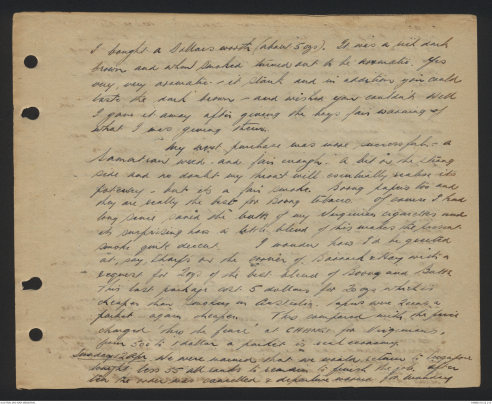 I bought a Dollars worth (about 5 ozs). It was a rich dark
brown and when smoked turned out to be aromatic. Yes
very, very aromatic - it stank and in addition you could
taste the dark brown - and wished you couldn't. Well
I gave it away after giving the boys fair warning of
what I was giving them.
My next purchase was more successful - a
Sumatran weed - and fair enough. A bit on the strong
side and no doubt my heart will eventually realise its
potency - but its a fair smoke. Boong papers too and
they are really the best for Boong tobacco. Of course I had
long since saved the butts of my Virginian cigarettes and
its surprising how a little blend of this makes the present
smoke quite decent. I wonder how I'd be greeted
at, say, the corner of with a
request for 2 ozs of the best blend of Boong and Butts
This last package cost 5 dollars for 20 ozs which is
cheaper than smoking in Australia. Papers were a
packet again cheaper. This compared with the price
charged thro the fence at Changi for Virginians,
from 50c to 1 dollar a packet is real economy.
Sunday We were warned that we would return to Singapore
tonight, less 55 all ranks to remain to finish the job. After
tea the order was cancelled & departure warned for Monday